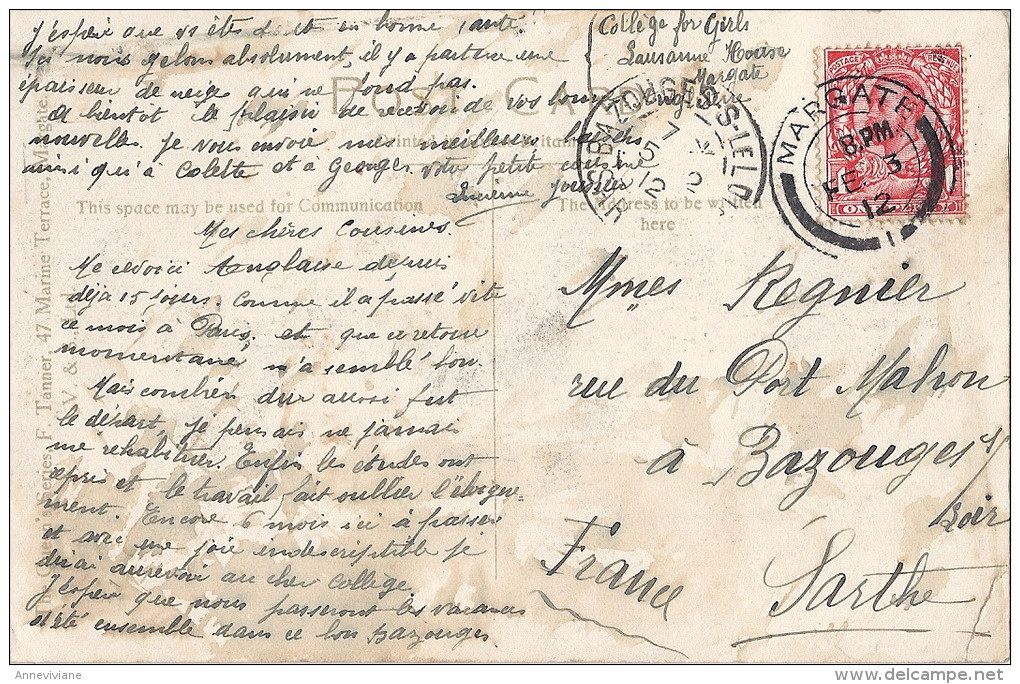 College for Girls
Lausanne House
Margate
Angleterre
Mes chères Cousines.
Me revoici Anglaise depuis
déjà 15 jours. Comme il a passé vite
ce mois à Paris, et que ce retour
momentané m'a semblé bon.
Mais combien dur aussi fut
le départ, je pensais ne jamais
me rehabituer. Enfin les études ont
repris et le travail fait oublier l'éloigne-
ment. Encore 6 mois ici à passer
et avec une joie indescriptible je
dirai aurevoir au cher collège
J'espère que nous passerons les vacances
d'été ensemble dans ce bon Bazouges
J'espère que vs êts tts et en bonne santé.
Ici nous gelons absolument, il y a partout une
épaisseur de neige qui ne fond pas.
A bientôt le plaisir de recevoir de vos bonnes
nouvelles. Je vous envoie mes meilleurs baisers
ainsi qu'à Colette et à Georges votre petite cousine
Lucienne
POST CARD
This space may be used for Communication
The Address to be written
here
Series, F. Tanner, 47 Marine Terrace, Margate.
POSTAGE REVENUE
MARGATE
8. PM
FE 3
12
1
BAZOUGES-S-LE-LOIR
SARTHE
5
12
Mmes Regnier
rue du Port Mahon
à Bazouges s/
Loir
Sarthe
France
Anneviviane
www.delcampe.net